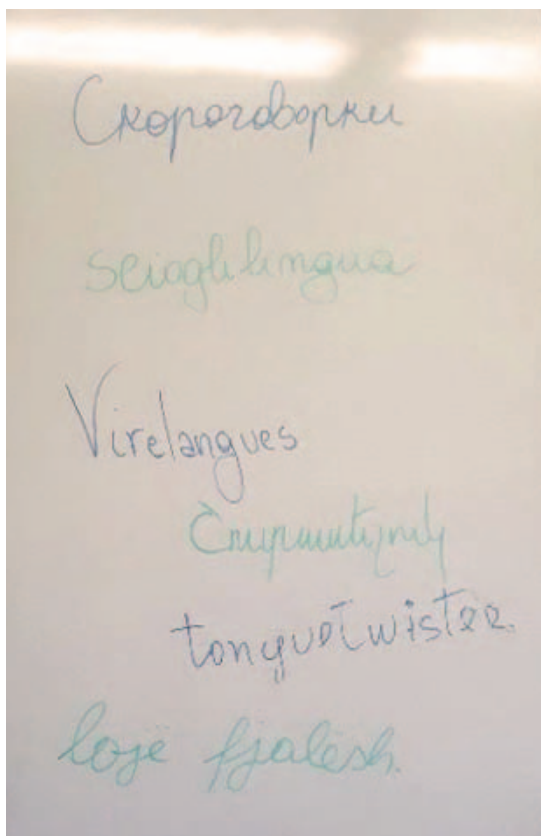 Скороговорки
scioglilingua
Virelangues
Շուտասելուկ
tonguetwister
lojë fjalësh.